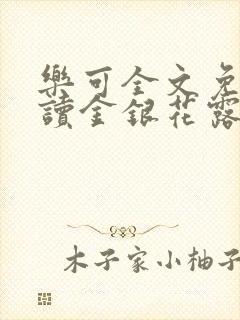 樂可全文免
讀金銀花露
木子家小柚子